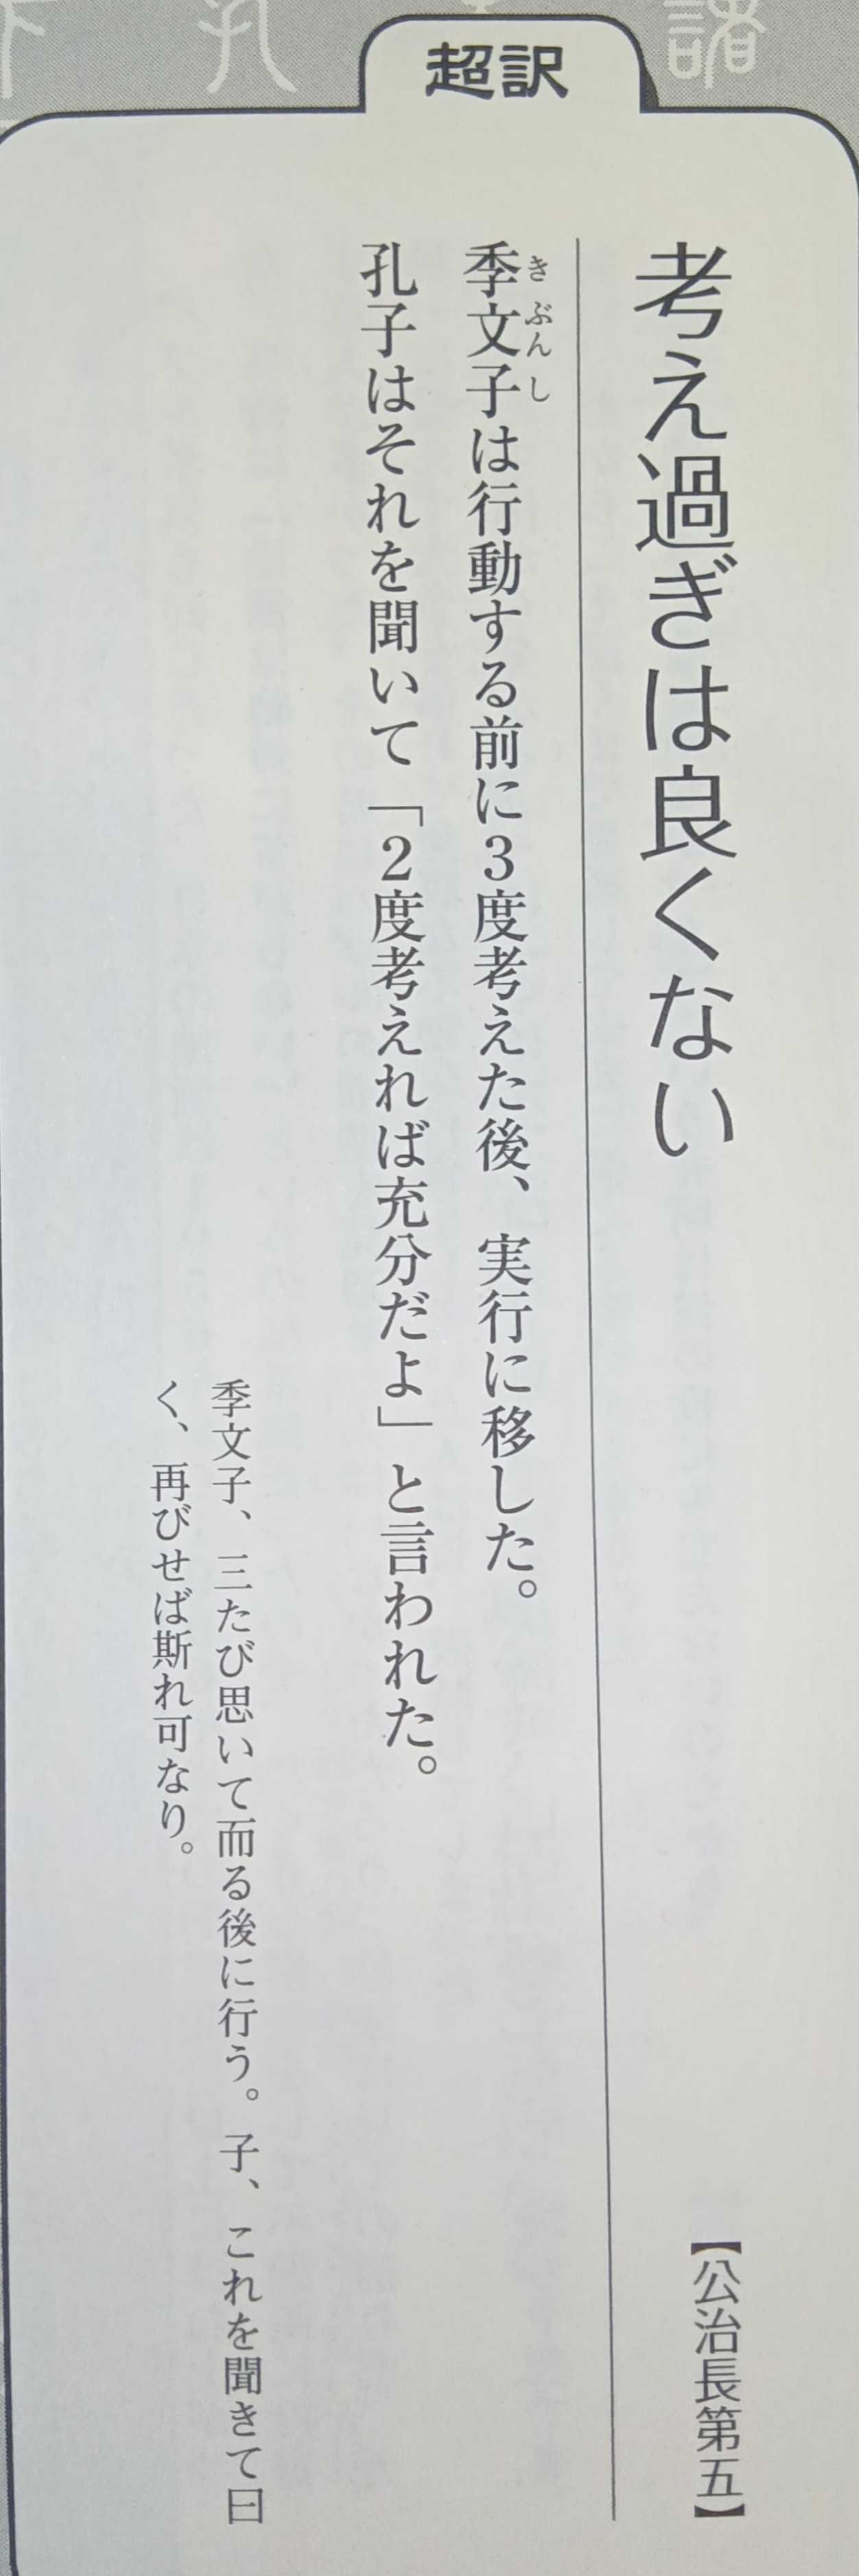 超訳
考え過ぎは良くない
【公治長第五】
季文子は行動する前に3度考えた後、実行に移した。
きぶんし
孔子はそれを聞いて「2度考えれば充分だよ」と言われた。
季文子、三たび思いて而る後に行う。子、これを聞きて曰
く、再びせば斯れ可なり。
孔
諸